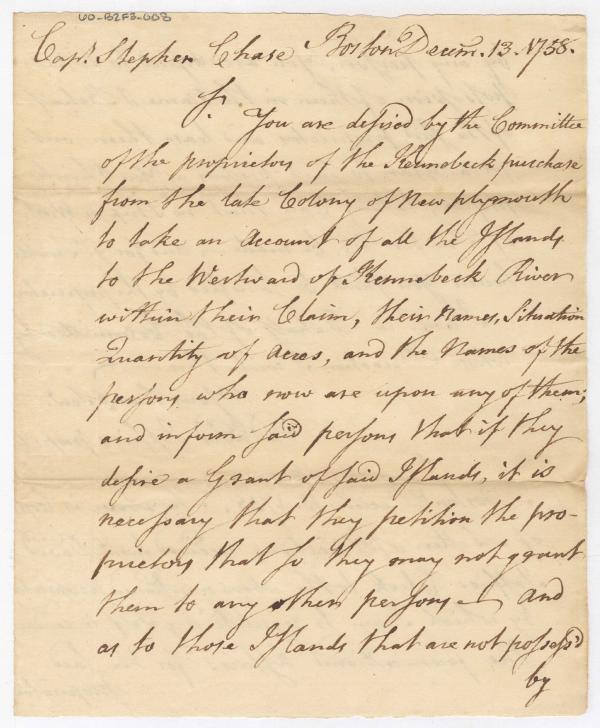 60-B2F3-008
Cap.t Stephen Chase Boston Decem. 13. 1758.
Sr. You are desired by the Committee
of the proprietors of the Kennebeck purchase
from the late Colony of New plymouth
to take an Account of all the Islands
to the Westward of Kennebeck River
within their Claim, their Names, Situation
Quantity of Acres, and the Names of the
persons who now are upon any of them;
and inform said persons that if they
desire a Grant of said Islands, it is
necessary that they petition the pro-
prietors that so they may not grant
them to any other persons — And
as to those Islands that are not possess'd
by